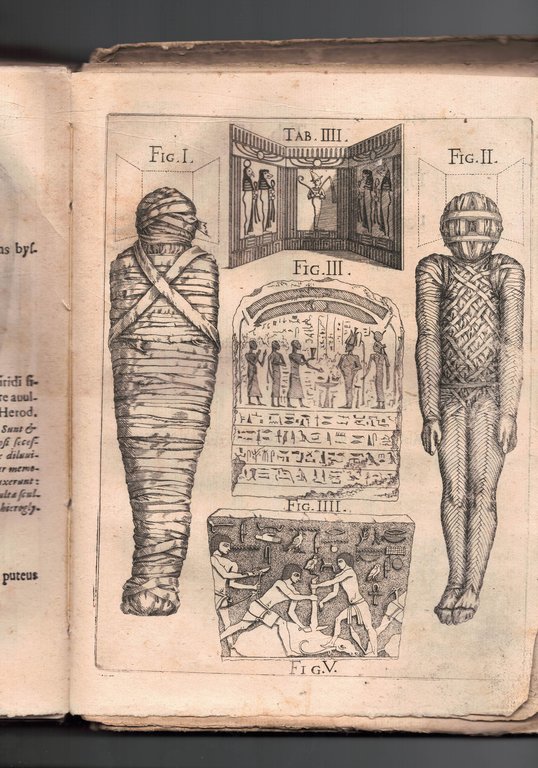 ns byſ-
iridi ſi-
re avul-
Herod.
Sunt &
oſt ſeceſ-
e diluvi-
er memo-
uxerunt:
ulta ſcul-
hierogly-
puteus
TAB. IIII.
FIG. I.
FIG. II.
FIG. III.
FIG. IIII.
FIG. V.